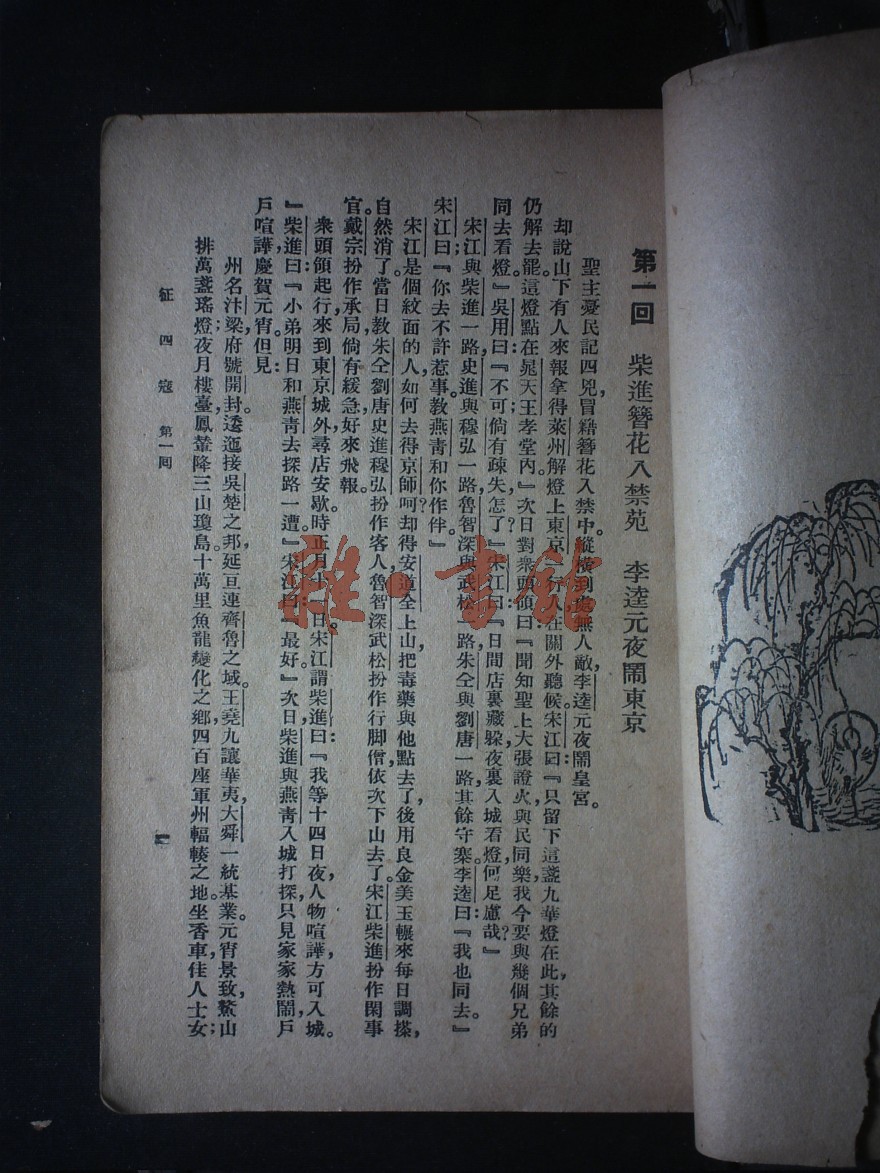 第一回　柴進簪花入禁苑　李逵元夜鬧東京
聖主憂民記四兇，冒籍簪花入禁中。縱橫到處無人敵，李逵元夜鬧皇宮。
却說山下有人來報，拿得萊州解燈上東京一行人，在關外聽候。宋江曰：『只留下這盞九華燈在此，其餘的
仍解去罷。這燈點在晁天王孝堂內。』次日，對衆頭領曰：『聞知聖上大張證火，與民同樂，我今要與幾個兄弟
同去看燈。』吳用曰：『不可；倘有疎失，怎了？』宋江曰：『日間店裏藏躱，夜裏入城看燈，何足慮哉？』
宋江與柴進一路，史進與穆弘一路，魯智深與武松一路，朱仝與劉唐一路，其餘守寨。李逵曰：『我也同去。』
宋江曰：『你去不許惹事，教燕青和你作伴。』
宋江是個紋面的人，如何去得京師呵？却得安道全上山，把毒藥與他點去了，後用良金美玉，輾來每日調搽，
自然消了。當日教朱仝劉唐史進穆弘扮作客人，魯智深武松扮作行脚僧，依次下山去了。宋江柴進扮作閑事
官，戴宗扮作承局，倘有緩急，好來飛報。
衆頭領起行，來到東京城外，尋店安歇。時正月十一日，宋江謂柴進曰：『我等十四日夜，人物喧譁，方可入城。
』柴進曰：『小弟明日和燕青去探路一遭。』宋江曰：『最好。』次日，柴進與燕青入城打探，只見家家熱鬧，戶
戶喧譁，慶賀元宵。但見：
州名汴梁，府號開封。逶迤接吳楚之邦，延亘連齊魯之域。王堯九讓華夷，大舜一統基業。元宵景致，鰲山
排萬盞瑤燈；夜月樓臺，鳳輦降三山瓊島。十萬里魚龍變化之鄉，四百座軍州輻輳之地。坐香車，佳人士女；
征四寇　第一回
雜·書館